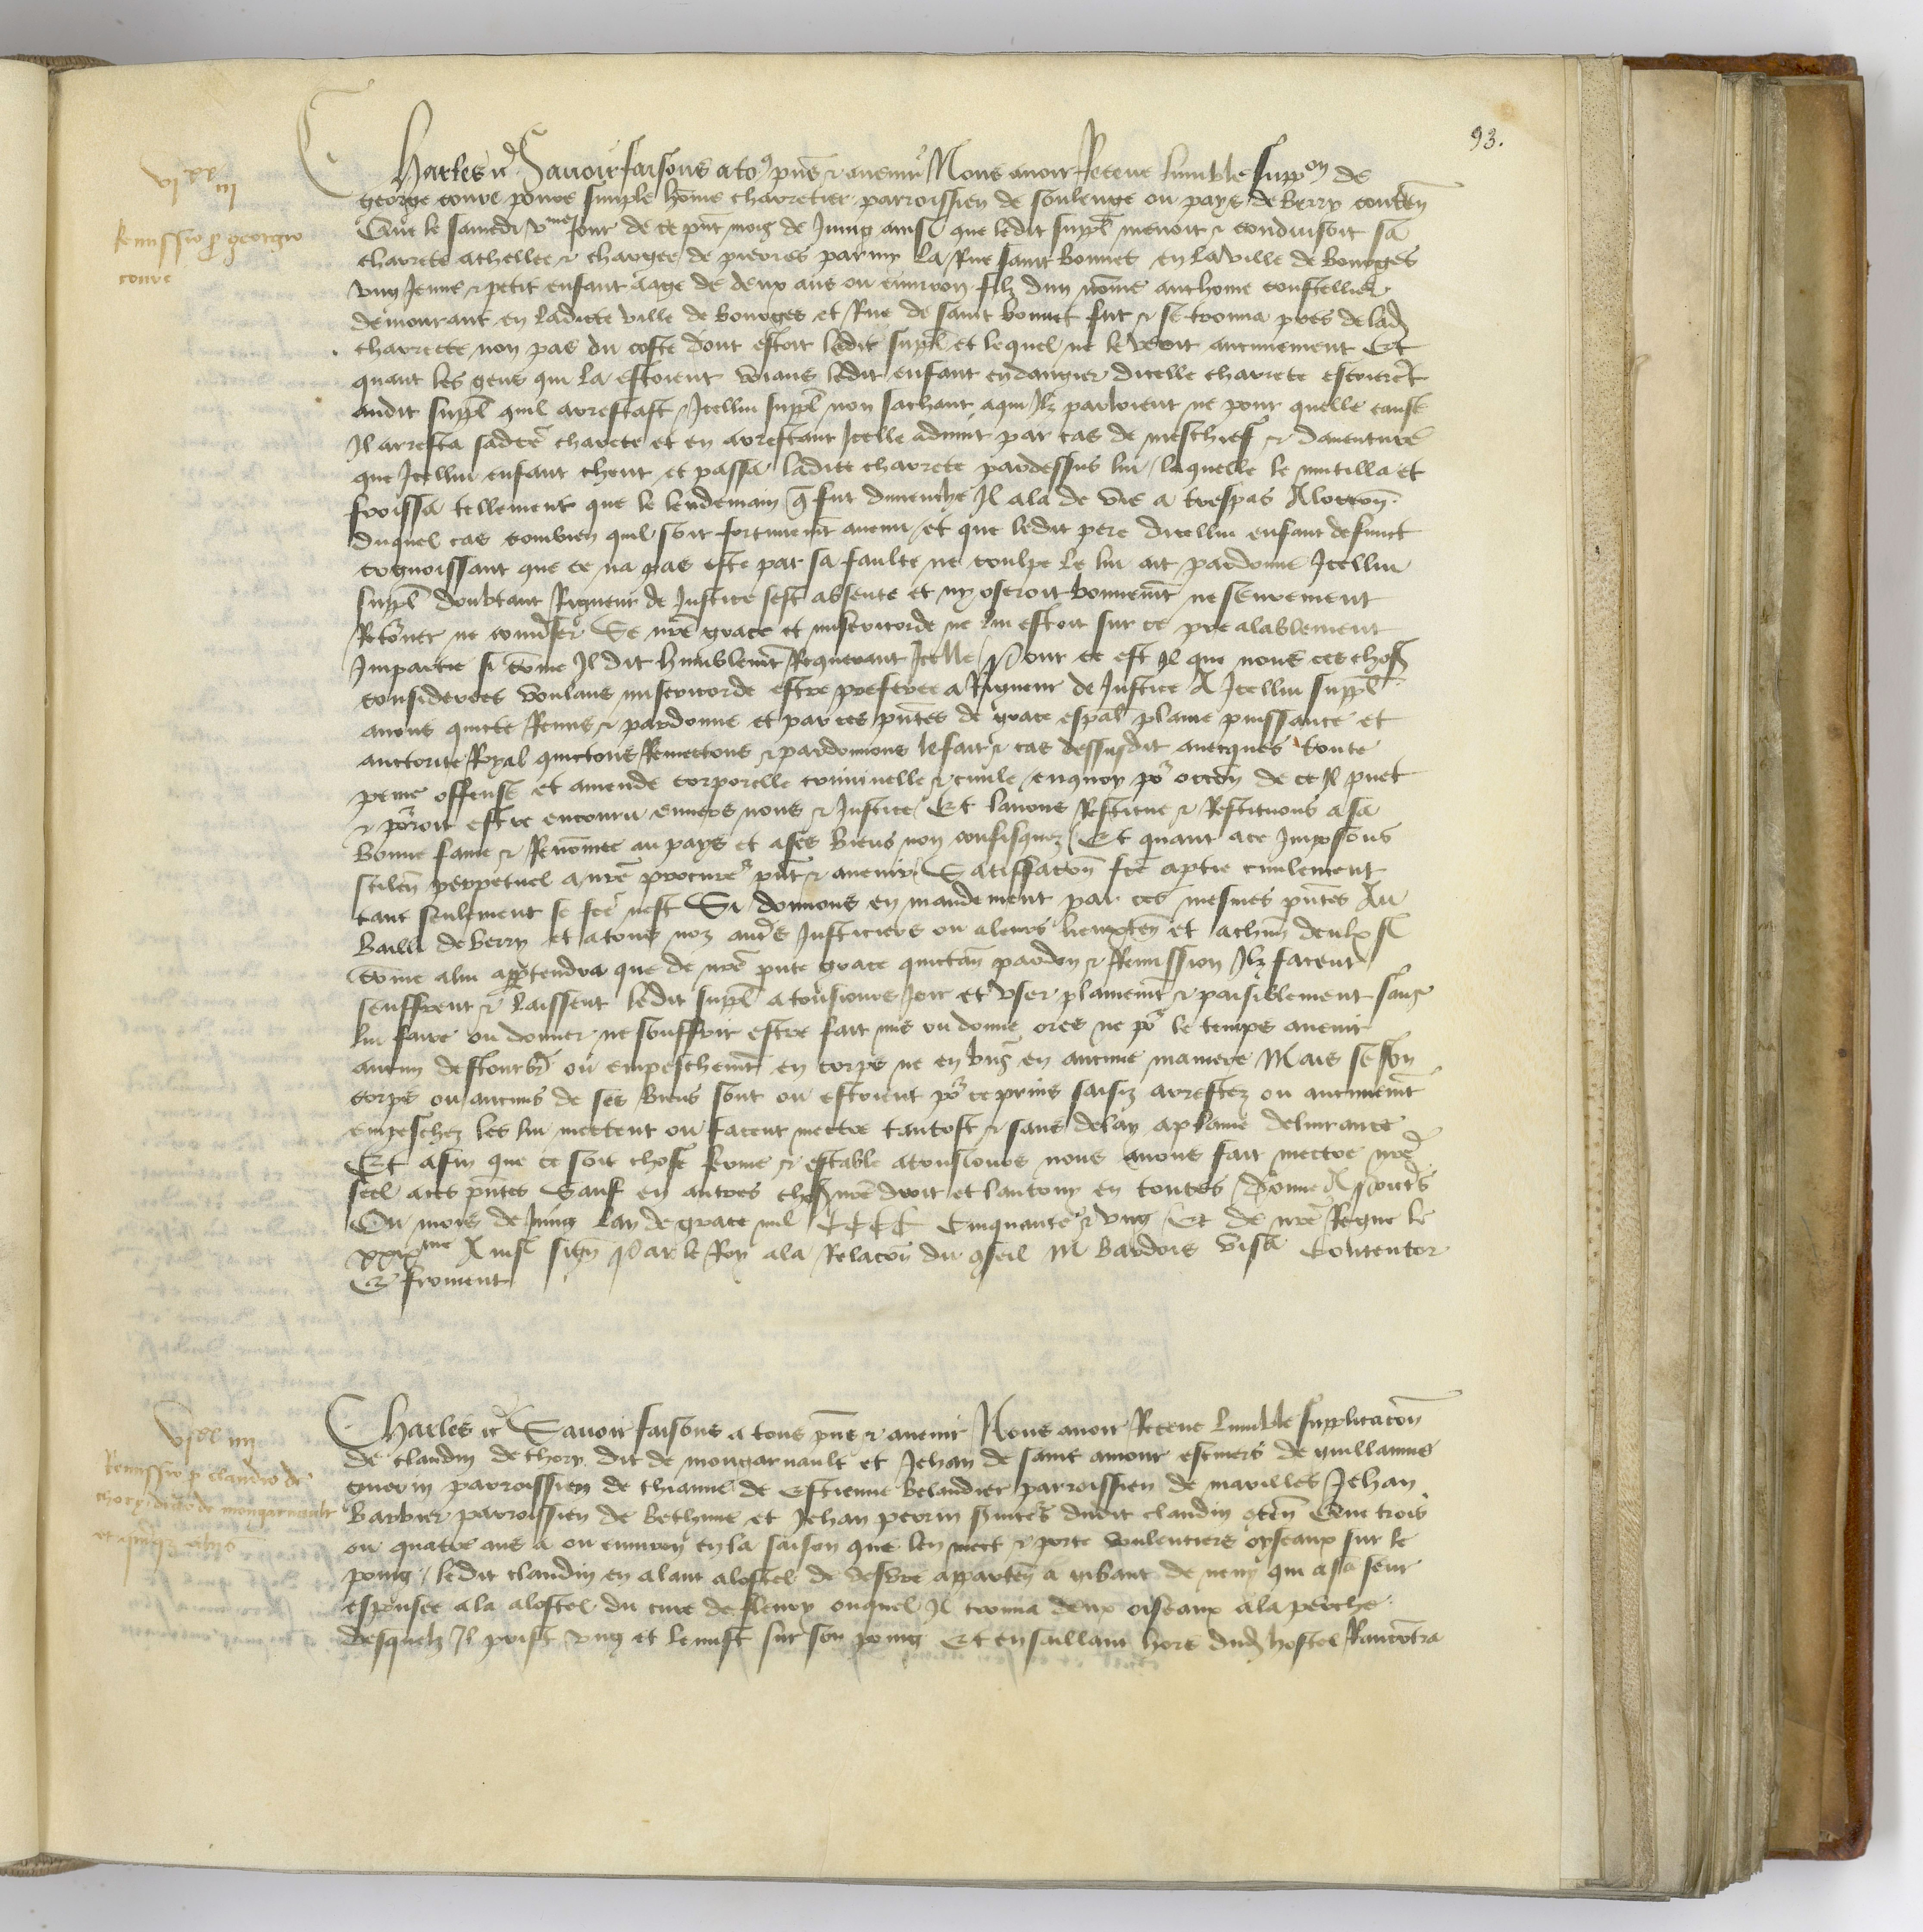 93.
Charles etc Savoir faisons a tous pñs & avenir Nous avoir Receue lumble suppon de
george coure povre simple home charretier parroissien de soulenge ou pays de berry conten
Que le samedi vme jour de ce pñt mois de Juing ainsi que ledit suppl menoit & conduisoit sa
charrete athellee & chargee de pierres parmy la Rue saint bonnet en la ville de bourges
ung Jeune & petit enfant aage de deux ans ou environ filz dun nome anthoine coustellier
demourant en ladicte ville de bourges et Rue de saint bonnet fut & se trouva pres de lad
charrette non pas du coste dont estoit ledit suppl et lequel ne le veoit aucunement Et
quant les gens qui la estoient voians ledit enfant en dangier dicelle charrete escrierent
audit suppl quil arrestast & Icellui suppl non sachant a qui Ilz parloient ne pour quelle cause
Il arresta sadicte charrete et en arrestant Icelle advint par cas de meschief & daventure
que Icellui enfant cheut et passa ladicte charrete pardessus lui / laquelle le mutilla et
froissa tellement que le lendemain q fut dimenche Il ala de vie a trespas A loccon
duquel cas combien quil soit fortunemt avenu / et que ledit pere dicellui enfant defunct
cognoissant que ce na pas este par sa faulte ne coulpe le lui ait pardonne Icellui
suppl doubtant Rigueur de Justice sest absente et ny oseroit bonnemt ne seurement
Retorner ne converser Se nre grace et misericorde ne lui estoit sur ce prealablement
Impartie si come Il dit humblemt Requerant Icelle / Pour ce est Il que nous ces choses
considerees voulans misericorde estre preferee a Rigueur de Justice A Icellui suppl
avons quicte Remis & pardonne et par ces pñtes de grace espal plaine puissance et
auctorite Royal quictons Remectons & pardonnons le fait & cas dessusdit avecques toute
peine offense et amende corporelle criminelle & civile / en quoy por occon de ce Il puet
& porroit estre encouru envers nous & Justice / Et lavons Restitue & Restituons a sa
bonne fame & Renomee au pays et a ses biens non confisquez / Et quant a ce Imposons
silen perpetuel a nre procureur pñt & avenir / Satisfacon fce a ptie civilement
tant seulement se fce nest Si donnons en mandement par ces mesmes pñtes Au
bailli de berry et a tous noz autres Justiciers ou a leurs lieuxten et a chun deulx si
come a lui appartendra que de nre pñte grace quictan pardon & Remission Ilz facent
seuffrent & laissent ledit suppl a tousjours Joir et user plainemt & paisiblement sans
lui faire ou donner ne souffrir estre fait mis ou donne ores ne por le temps avenir
aucun destourbr ou empeschemt en corps ne en biens en aucune maniere Mais se son
corps ou aucuns de ses biens sont ou estoient por ce prins saisiz arrestez ou aucunemt
empeschez les lui mectent ou facent mectre tantost & sans delay a plaine delivrance
Et afin que ce soit chose ferme & estable a tousjours nous avons fait mectre nre
seel a ces pñtes Sauf en autres choses nre droit et lautruy en toutes / Donne A
Ou mois de Juing Lan de grace mil CCCC Cinquante & ung / Et de nre Regne le
xxixme Ainsi sign Par le Roy a la Relacon du conseil M bardois visa Contentor
E froment
vixx iii
Remissio p georgio
coure
Charles etc Savoir faisons a tous pñs & avenir Nous avoir Receue lumble supplicacon
de claudin de thory dit de mongarnault et Jehan de saint amour escuiers de guillaume
guerin parroissien de thianne de Estienne belandier parroissien de marilles Jehan
barbier parroissien de bethune et Jehan perrin serviteurs dudit claudin conten Que trois
ou quatre ans a ou environ en la saison que len mect & porte voulentiers oyseaux sur le
poing / ledit claudin en alant a lostel de desvre apparten a de neny qui a sa seur
espousee ala a lostel du cure de fleury ouquel Il trouva deux oiseaux a la perche
desquelz Il prist ung et le mist sur son poing Et en saillant hors dud hostel Rancontra
vixx iiii
Remissio p claudio de
thory dicto de mongarnault
et quibusd aliis